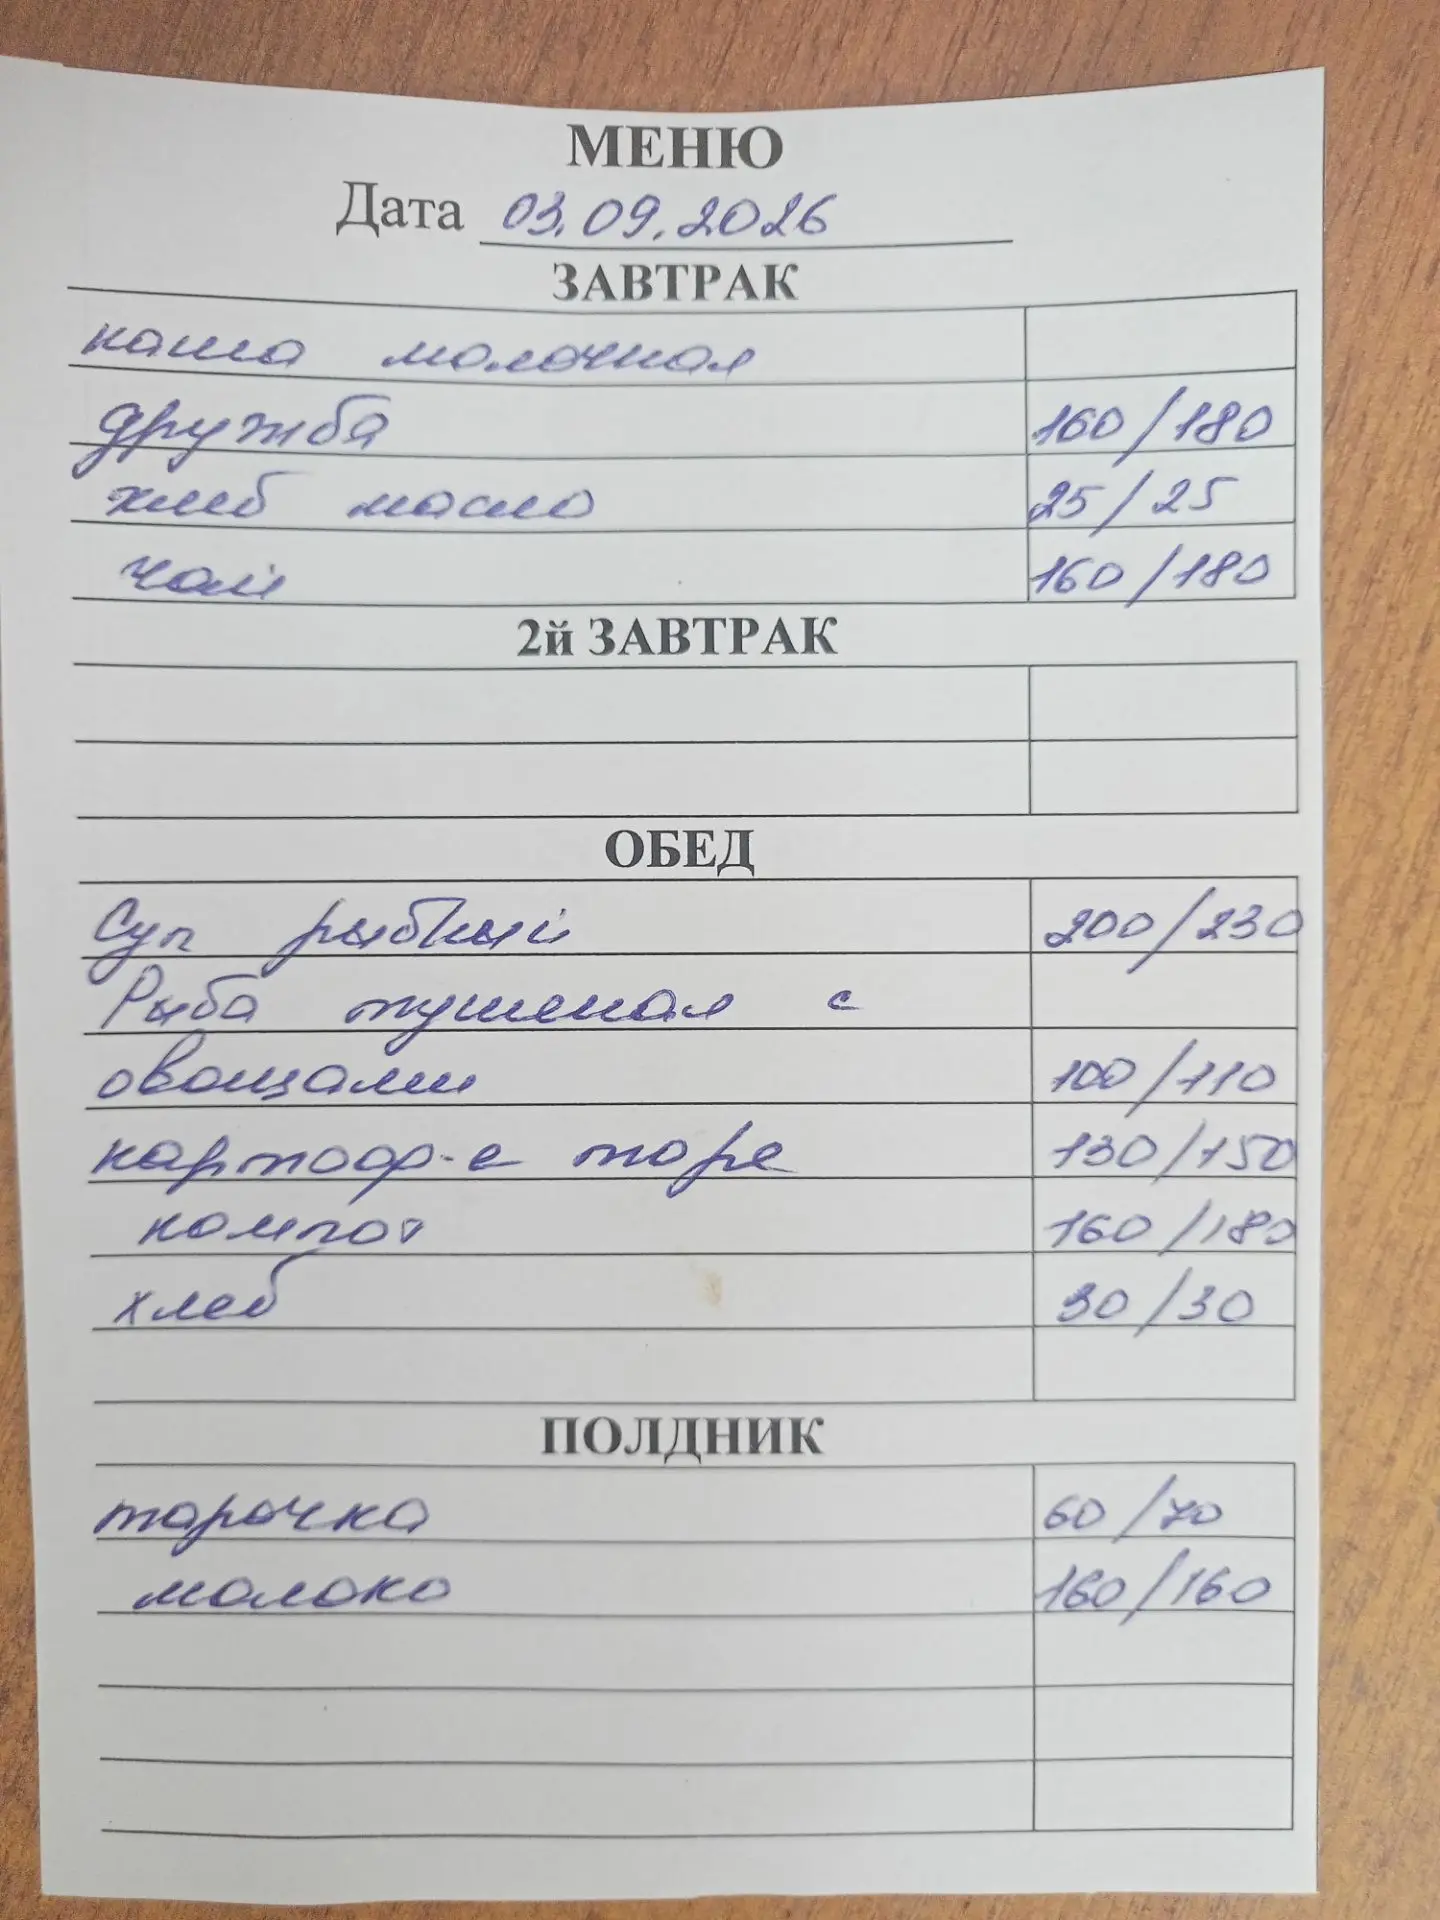 МЕНЮ
Дата 03.09.2026
ЗАВТРАК
каша молочная
дружба 160/180
хлеб масло 25/25
чай 160/180
2й ЗАВТРАК
ОБЕД
Суп рыбный 200/230
Рыба тушеная с
овощами 100/110
картоф-е пюре 130/150
компот 160/180
хлеб 30/30
ПОЛДНИК
тарочка 60/70
молоко 160/160